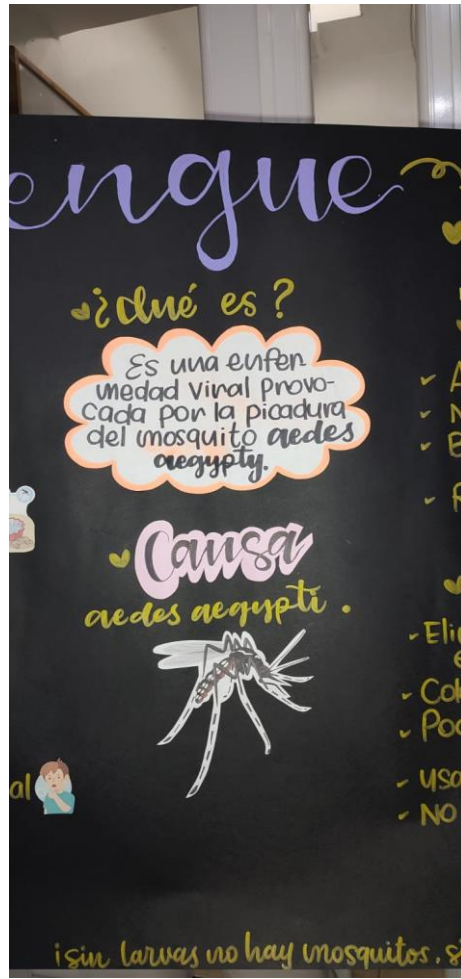 engue
¿Qué es?
Es una enfer
medad viral provo-
cada por la picadura
del mosquito aedes
aegypty.
Causa
aedes aegypti.
al
- Eli
- Col
- Poc
- usa
- NO
¡sin larvas no hay mosquitos, s